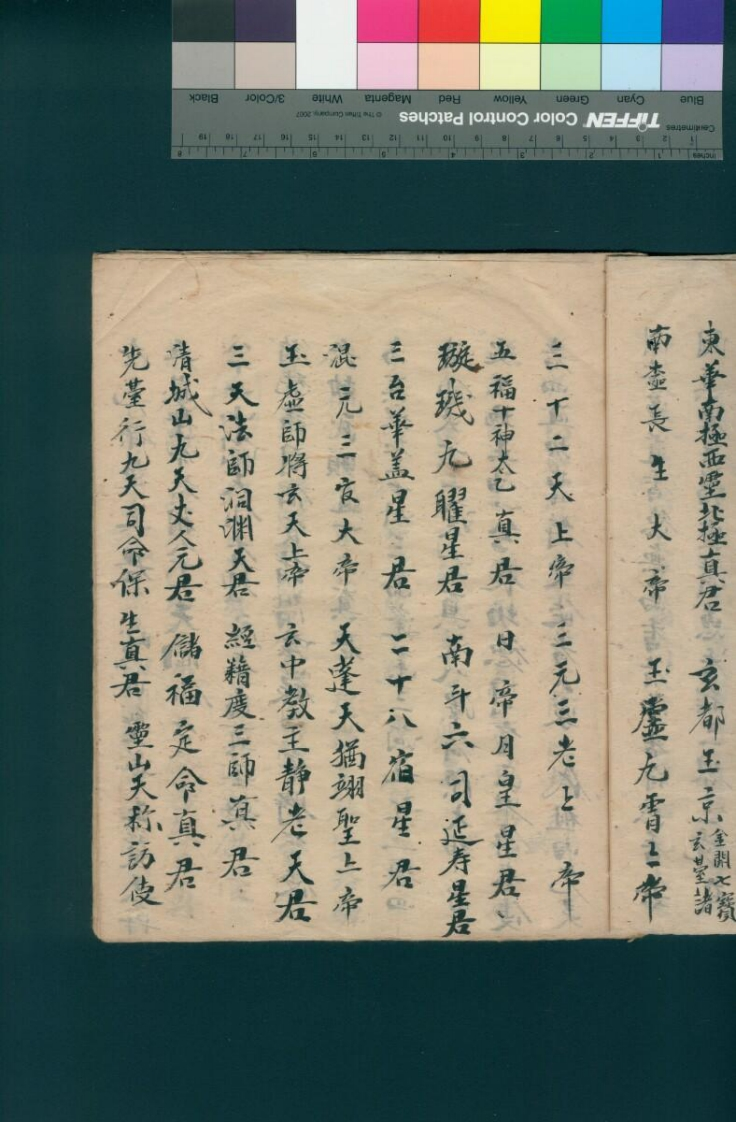 東華南極西靈北極真君 玄都玉京金闕七寳玄臺諸
南壺長生大帝 玉虛九霄上帝
三十二天上帝 三元三老上帝
五福十神太乙真君 日帝月皇星君
璇璣九曜星君 南斗六司延寿星君
三台華盖星君 二十八宿星君
混元三官大帝 天蓬天猶翊聖上帝
玉虚師將玄天上帝 玄中教主静老天君
三天法師洞渊天君 經籍度三師真君
青城山九天丈人元君 儲福定命真君
先臺行九天司命保生真君 靈山天称訪使
Blue Cyan Green Yellow Red Magenta White 3/Color Black
TIFFEN Color Control Patches © The Tiffen Company, 2007
Centimetres 1 2 3 4 5 6 7 8 9 10 11 12 13 14 15 16 17 18 19
Inches 1 2 3 4 5 6 7 8